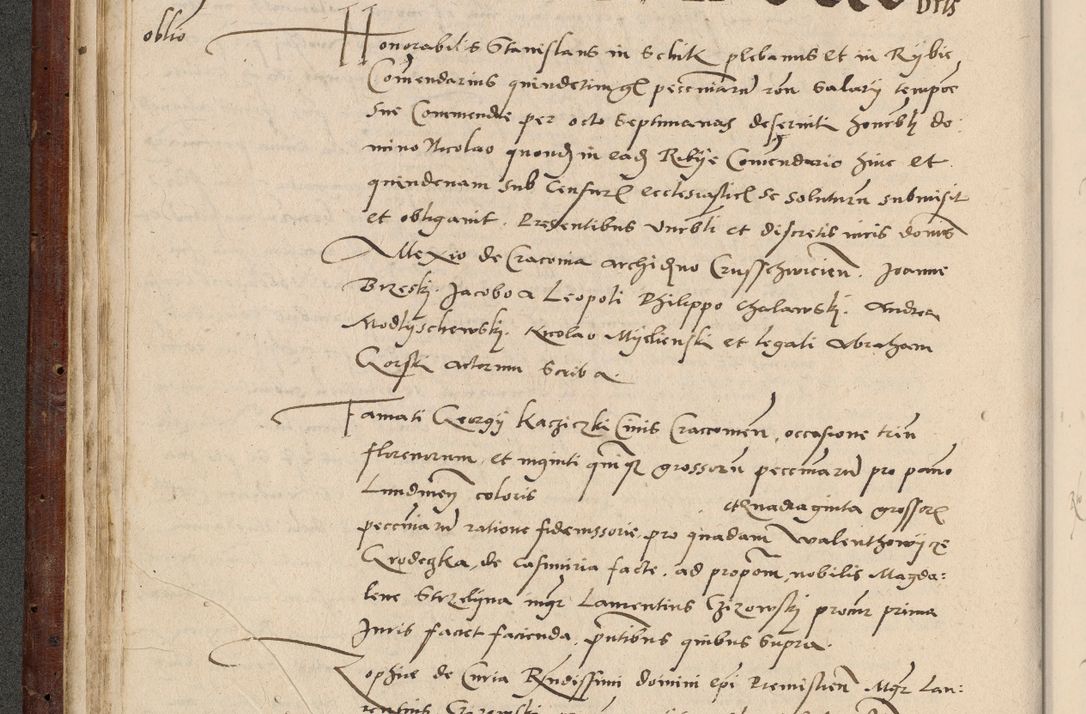 oblio
Honorabilis Stanislaus in Selnik plebanus et in Rybie
Comendarius quindecim gl pecuniarū rōn Salarij tempoe
sue Commendde per octo Septimanas deserviti honorbli do:
mino Nicolao quondam in eadē Ribije Comendario hinc et
quindenam sub Censuris ecclesiasticis se soluturū submisit
et obligavit. Presentibus venrbli et discretis viris donis
Allexio de Cracovia archidno Crusschwicien. Joanne
Brzeski. Jacobo a Leopoli Philippo Chalawski. Andrea
Modlyschewski. Nicolao Myslienski et legali Abraham
Gorski actorum Scriba.
Famati Georgij Kacziczki Civis Craccovien, occasione trium
florenorum, et viginti quinqe grossorū pecuniarū pro panno
Lundinen coloris et Quadraginta grossorum
pecuniarū ratione fideiussorie, pro quadam Walenthowijcze
Grodeczka, de Casimiria facte, ad proponm, nobilis Magda:
lene Strzelyna, mgr Laurentius Czizowski procur prima
Juris faciet facienda, pntibus quibus supra.
Zophiae de Curia Rendissimi domini epi Premislien Mgr Lau: